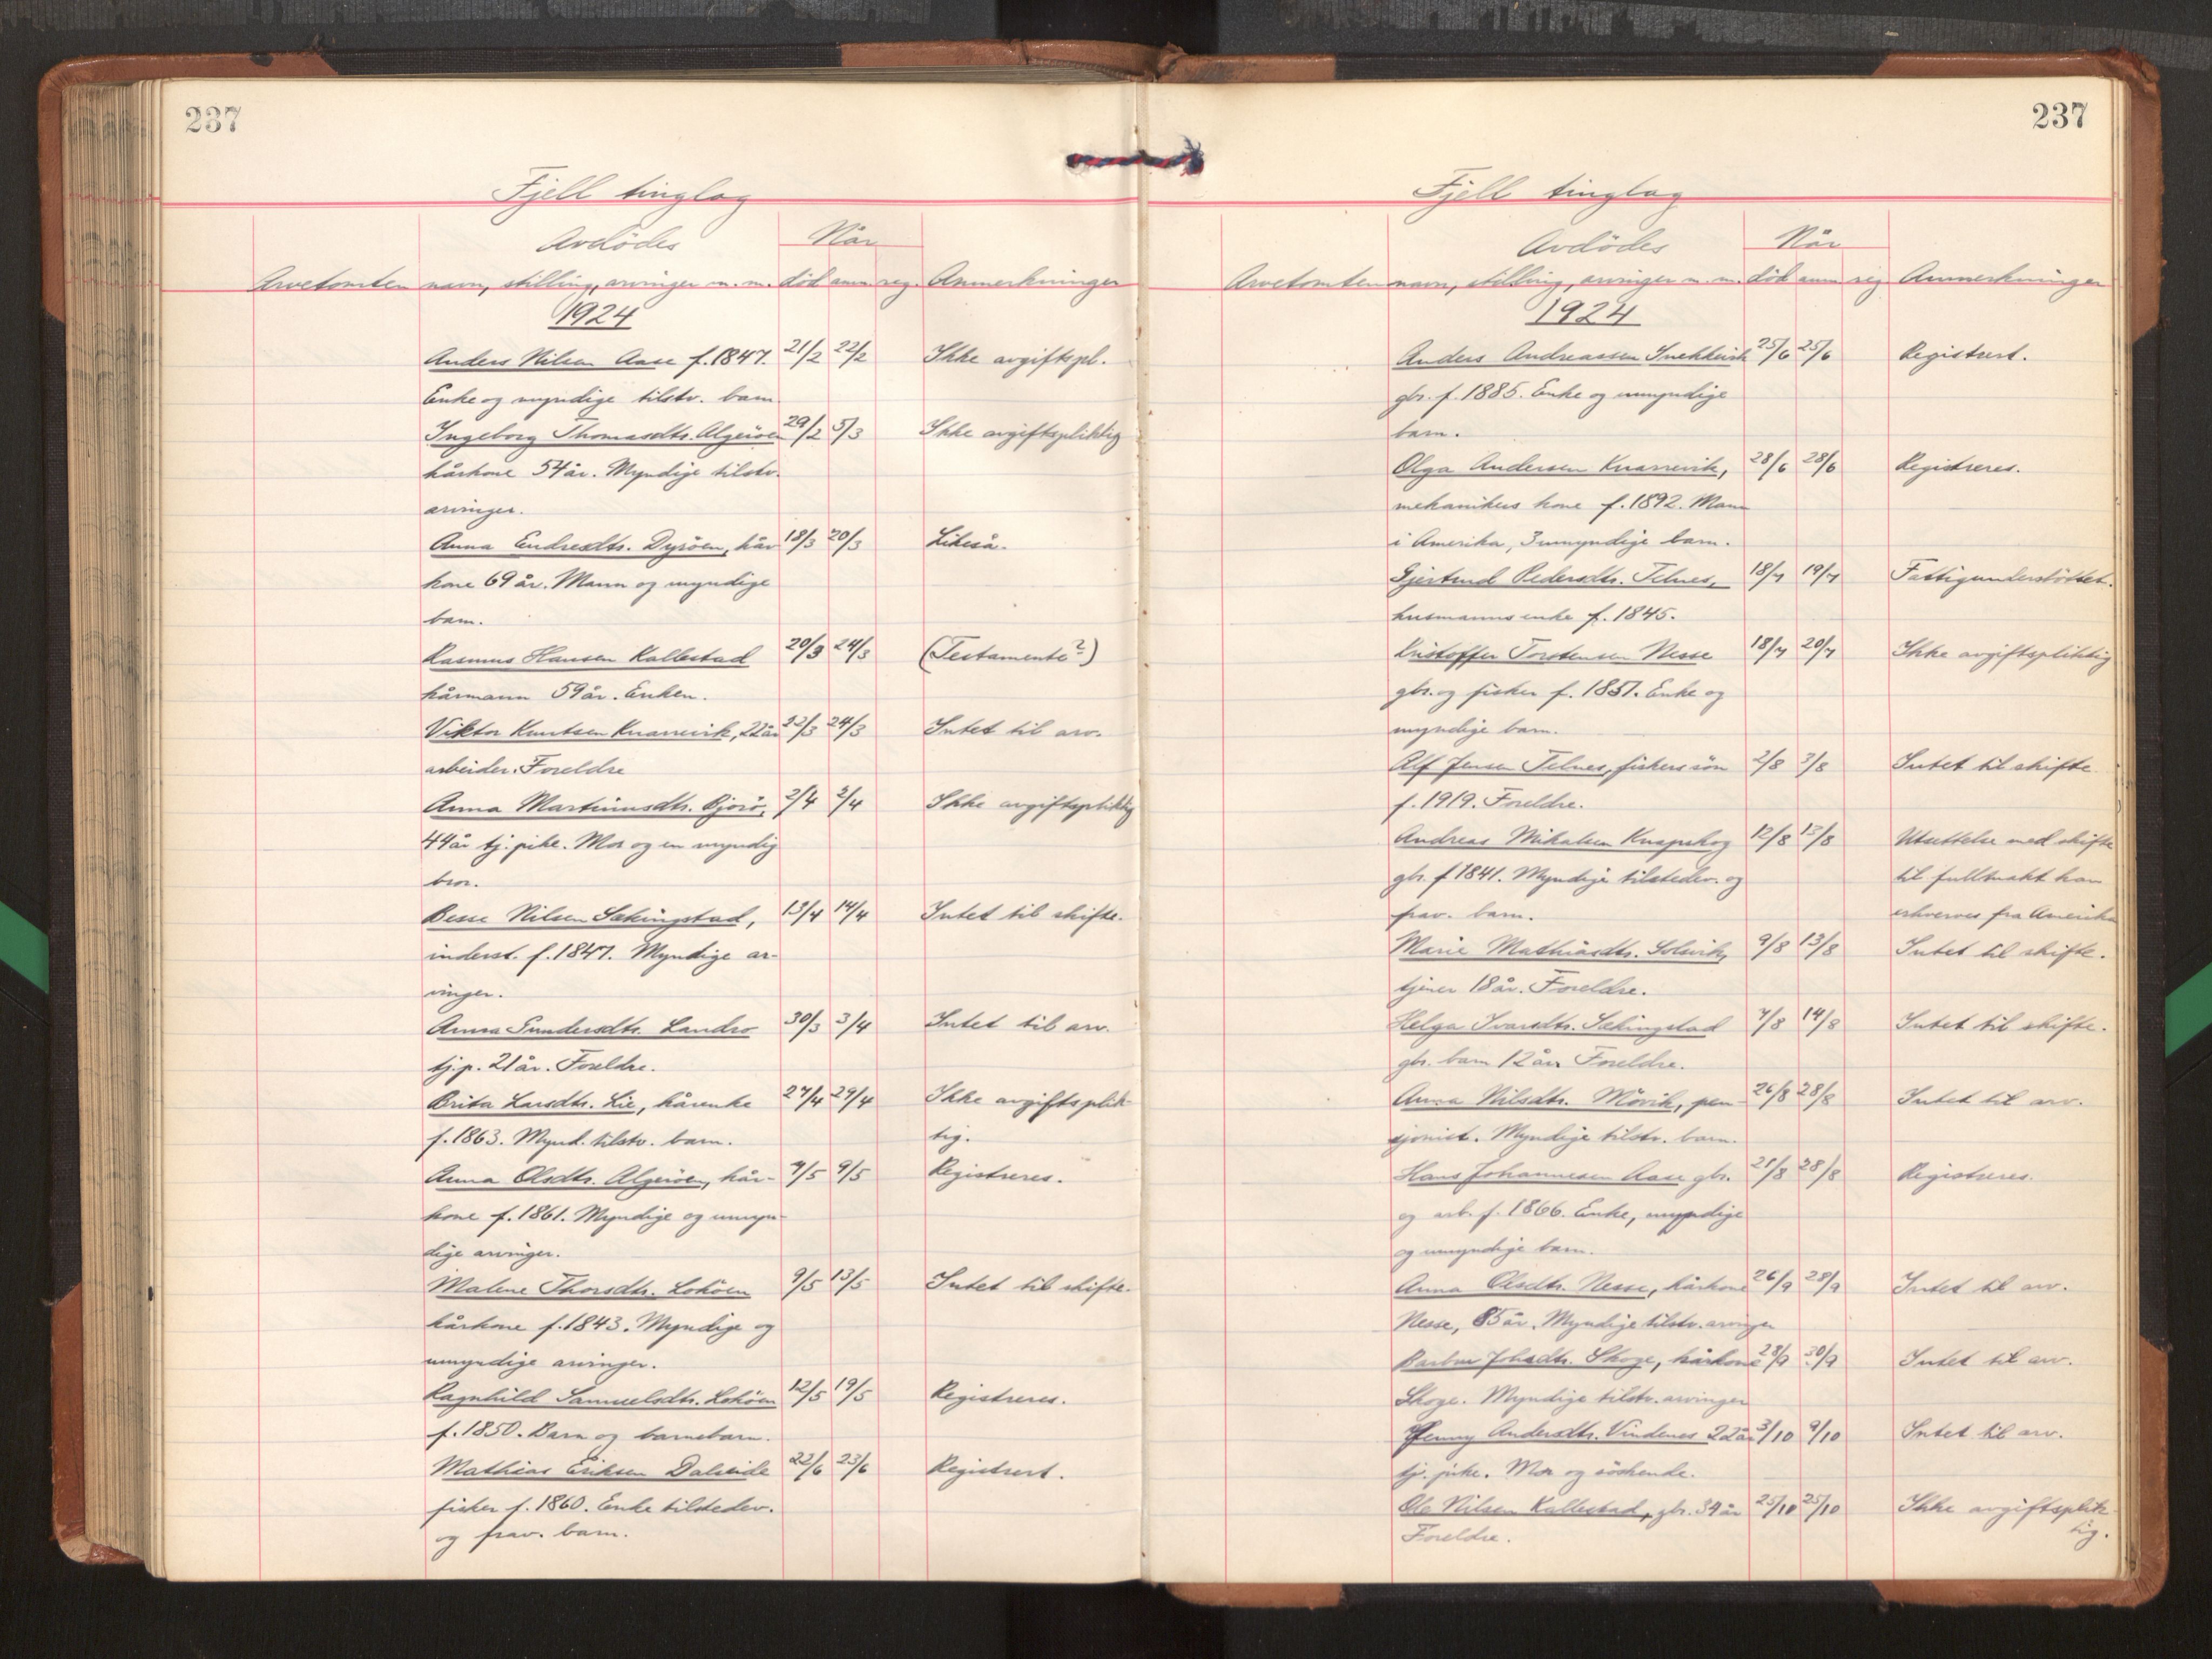 237
Fjell tinglag
Avdödes
Når
Arvetomten navn, stilling, arvinger m. m. död anm reg. Anmerkninger
1924
Anders Nilsen Aase f. 1847. 21/2 22/2 Ikke avgiftspl.
Enke og myndige tilstv. barn
Ingeborg Thomasdtr. Algeröen 29/2 5/3 Ikke avgiftspliktig
kårkone 54 år. Myndige tilstv.
arvinger.
Anna Endresdtr. Dyröen, kår 18/3 20/3 Likeså.
kone 69 år. Mann og myndige
barn.
Rasmus Hansen Kallestad 20/3 24/3 (Testamente?)
kårmann 59 år. Enken.
Viktor Knutsen Knarrevik, 22 år 22/3 24/3 Intet til arv.
arbeider. Foreldre
Anna Martinusdtr. Bjorö, 2/4 2/4 Ikke avgiftspliktig
44 år tj. pike. Mor og en myndig
bror.
Besse Nilsen Sekingstad, 13/4 14/4 Intet til skifte.
inderst. f. 1847. Myndige ar-
vinger.
Anna Gundersdtr. Landro 30/3 3/4 Intet til arv.
tj.p. 21 år. Foreldre.
Brita Larsdtr. Lie, kårenke 27/4 29/4 Ikke avgiftsplik-
f. 1863. Mynd. tilstv. barn. tig.
Anna Olsdtr. Algeröen, kår- 7/5 9/5 Registreres.
kone f. 1861. Myndige og umyn-
dige arvinger.
Malene Thorsdtr. Loköen 9/5 13/5 Intet til skifte.
kårkone f. 1843. Myndige og
umyndige arvinger.
Ragnhild Samuelsdtr. Loköen 12/5 19/5 Registreres.
f. 1850. Barn og barnebarn.
Mathias Eriksen Dalseide 22/6 23/6 Registrert.
fisker f. 1860. Enke tilstedev.
og frav. barn.
237
Fjell tinglag
Avdödes
Når
Arvetomten navn, stilling, arvinger m. m. död anm reg Anmerkninger
1924
Anders Andreassen Snekkevik 25/6 25/6 Registrert.
gbr. f. 1885. Enke og umyndige
barn.
Olga Andersen Knarrevik, 28/6 28/6 Registreres.
mekanikers kone f. 1892. Mann
i Amerika, 3 umyndige barn.
Gjertrud Pedersdtr. Telnes, 18/7 19/7 Fattigunderstöttet.
husmanns enke f. 1845.
Kristoffer Torstensen Nesse 18/7 20/7 Ikke avgiftspliktig
gbr. og fisker f. 1851. Enke og
myndige barn.
Alf Jensen Telnes, fiskers sön 2/8 3/8 Intet til skifte
f. 1919. Foreldre.
Andreas Mikalsen Knapskog 12/8 13/8 Utsettelse med skifte
gbr. f 1841. Myndige tilstedev. og til fullmakt kan
frav. barn. erhverves fra Amerika
Marie Mathiasdtr. Solsvik, 9/8 13/8 Intet til skifte.
tjener 18 år. Foreldre.
Helga Ivarsdtr. Sekingstad 7/8 14/8 Intet til skifte.
gbr. barn 12 år Foreldre.
Anna Nilsdtr. Mövik, pen- 26/8 28/8 Intet til arv.
sjonist. Myndige tilstv. barn.
Hans Johannesen Aase gbr. 21/8 28/8 Registreres.
og arb. f. 1866. Enke, myndige
og umyndige barn.
Anna Olsdtr. Nesse, kårkone 26/9 28/9 Intet til arv.
Nesse, 85 år. Myndige tilstv. arvinger
Barbra Johsdtr. Skoge, kårkone 28/9 30/9 Intet til arv.
Skoge. Myndige tilstv. arvinger
Jenny Andersdtr. Vindenes 22 år 3/10 9/10 Intet til arv.
tj. pike. Mor og söskende.
Ole Nilsen Kallestad, gbr. 34 år 25/10 25/10 Ikke avgiftsplik-
Foreldre. tig.